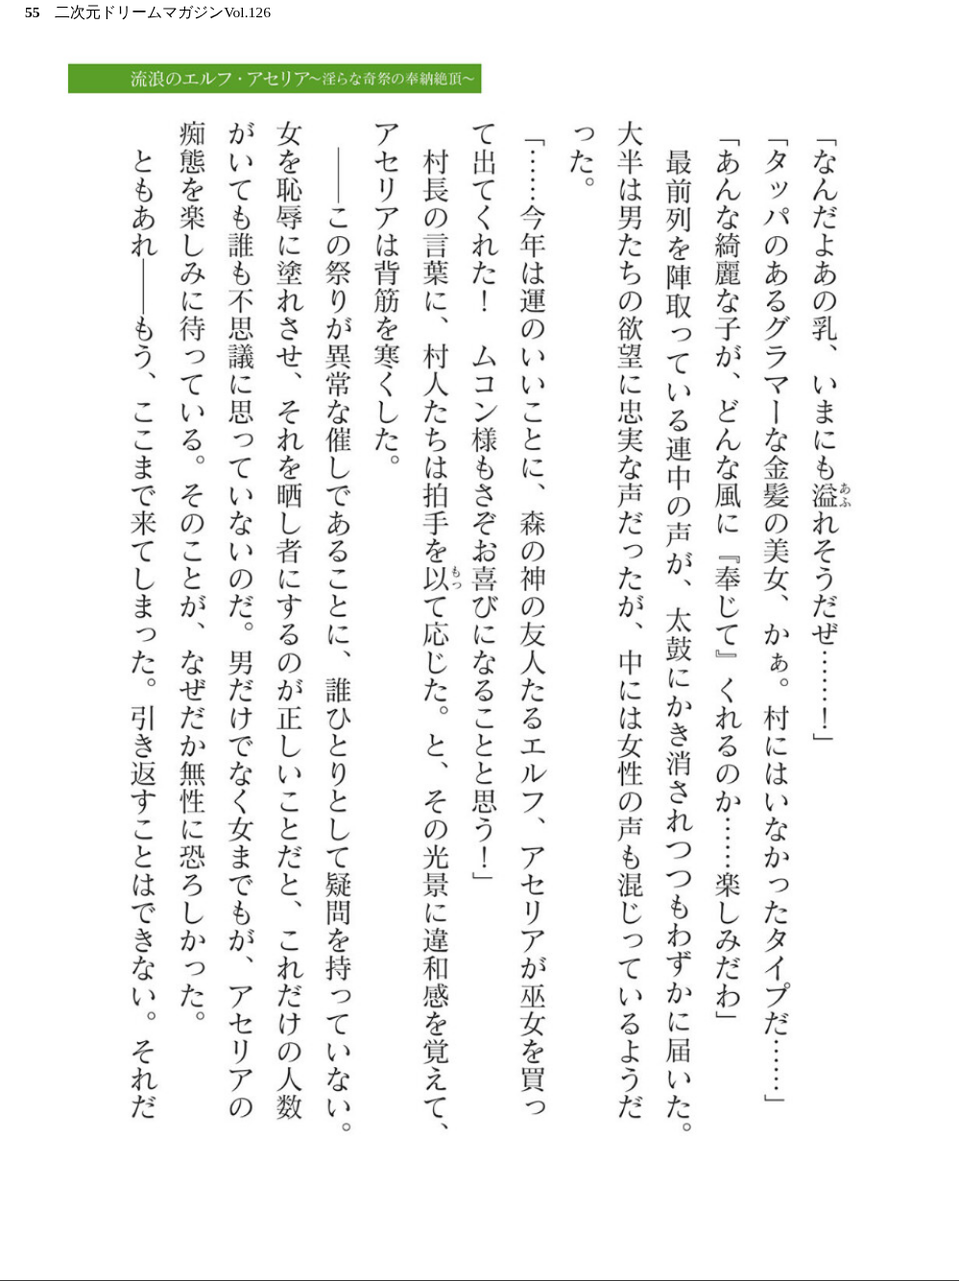 55 二次元ドリームマガジンVol.126
流浪のエルフ・アセリア～淫らな奇祭の奉納絶頂～
「なんだよあの乳、いまにも溢れそうだぜ……！」
「タッパのあるグラマーな金髪の美女、かぁ。村にはいなかったタイプだ……」
「あんな綺麗な子が、どんな風に『奉じて』くれるのか……楽しみだわ」
最前列を陣取っている連中の声が、太鼓にかき消されつつもわずかに届いた。
大半は男たちの欲望に忠実な声だったが、中には女性の声も混じっているようだ
った。
「……今年は運のいいことに、森の神の友人たるエルフ、アセリアが巫女を買っ
て出てくれた！　ムコン様もさぞお喜びになることと思う！」
村長の言葉に、村人たちは拍手を以て応じた。と、その光景に違和感を覚えて、
アセリアは背筋を寒くした。
――この祭りが異常な催しであることに、誰ひとりとして疑問を持っていない。
女を恥辱に塗れさせ、それを晒し者にするのが正しいことだと、これだけの人数
がいても誰も不思議に思っていないのだ。男だけでなく女までもが、アセリアの
痴態を楽しみに待っている。そのことが、なぜだか無性に恐ろしかった。
ともあれ――もう、ここまで来てしまった。引き返すことはできない。それだ